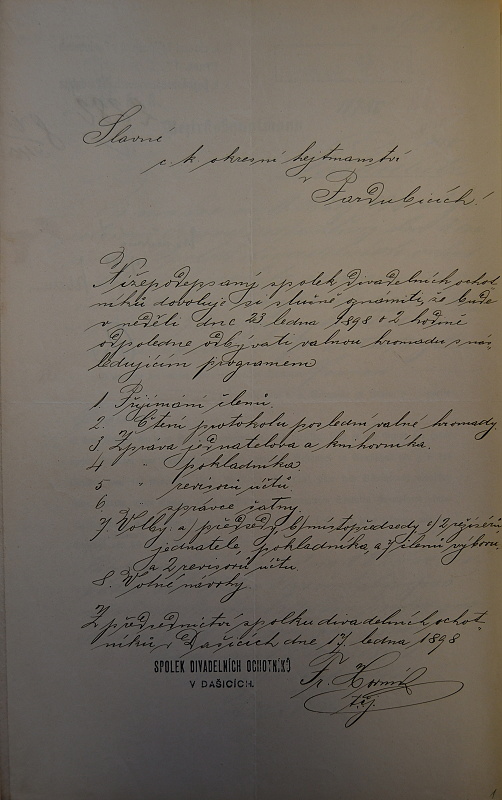 Slavné
c. k. okresní hejtmanství
v Pardubicích!
Nížepodepsaný spolek divadelních ochot-
níků dovoluje si slušně oznámiti, že bude
v neděli dne 23. ledna 1898 o 2 hodině
odpoledne odbývati valnou hromadu s nás-
ledujícím programem
1. Přijímání členů.
2. Čtení protokolu poslední valné hromady.
3. Zpráva jednatele a knihovníka.
4 " pokladníka.
5 " revisorů účtů
6. " správce šatny.
7) Volby: a) předsedy, b) místopředsedy c) 2 režisérů
jednatele, pokladníka, a 7 členů výboru
a 2 revisorů účtu.
8. Volné návrhy.
Z předsednictví spolku divadelních ochot-
níků v Dašicích dne 17. ledna 1898
SPOLEK DIVADELNÍCH OCHOTNÍKŮ
V DAŠICÍCH.
Fr.